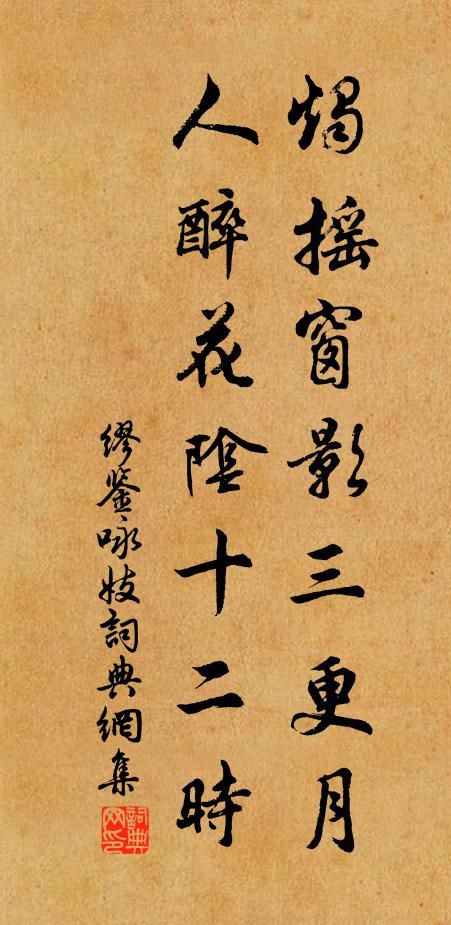 燭摇窗影三更月
人醉花陰十二時
繆鉴咏妓詞典網集
詞典网印